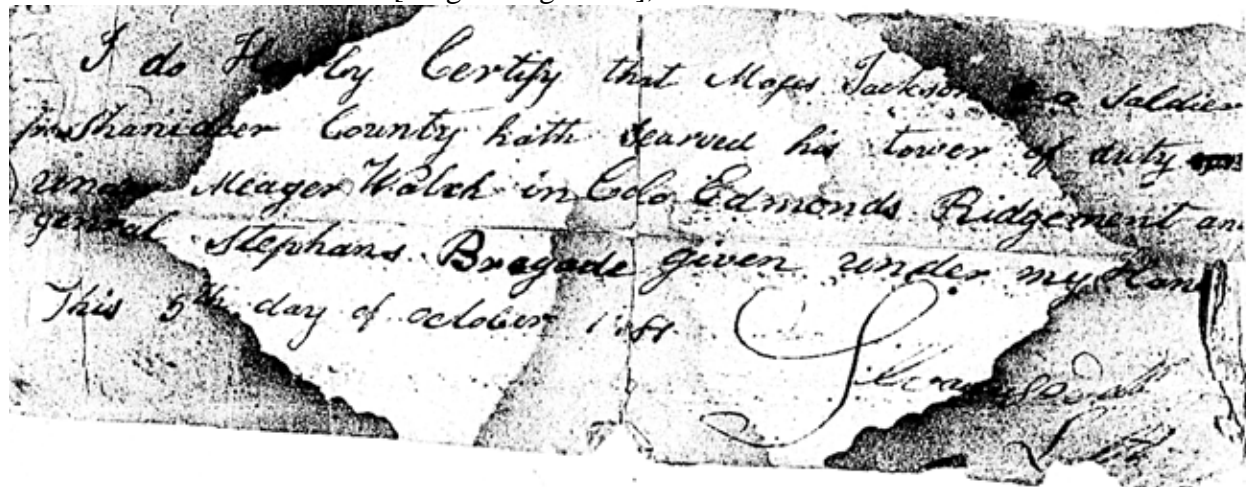 I do Hereby Certify that Moses Jackson a Saldier
Shanidoer County hath Searved his tower of duty
under Meager Walch in Colo Edmonds Ridgement an
genral Stephans Bregade given under my Han
This 5th day of october